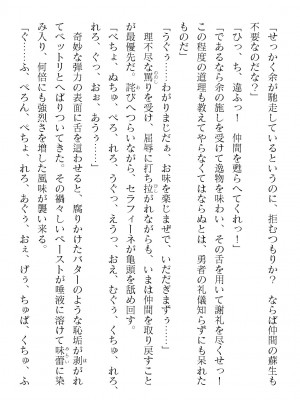 「せっかく余が馳走しているというのに、拒むつもりか？　ならば仲間の蘇生も
不要なのだな？」
「ひっ、ち、違ふっ……仲間を甦らへてくれっ！」
「であるなら余の施しを受けて逸物を味わい、その舌を用いて謝礼を尽くせっ！
この程度の道理も教えてやらなくてはならぬとは、勇者の礼儀知らずにも呆れた
ものだ」
「うぐぅ……わがりまじだぁぁ、お味を楽じまぜで、いただぎまずぅ……」
理不尽な罵りを受け、屈辱に打ち拉がれながらも、いまは仲間を取り戻すこと
が最優先だ。詫びへつらいながら、セラフィーネが亀頭を舐め回す。
「べちょ、ぬちゅ、べろ、れろ、うぐぅ、えうっ、おえ、むぐぅ、くちゅ、れろ、
れろ、ぐぅっ、おぉ、あうぅ……」
奇妙な弾力の表面に舌を這わせると、腐りかけたバターのような恥垢が剥がれ
てベットリとへばりついてきた。その禍々しいペーストが唾液に溶けて味蕾に染
み入り、何倍にも強烈さを増した風味が襲い来る。
「ぐ……ふ、べろん、べちょ、れろ、あぐぅ、おぇ、げぅ、ちゅぱ、くちゅ、ふ